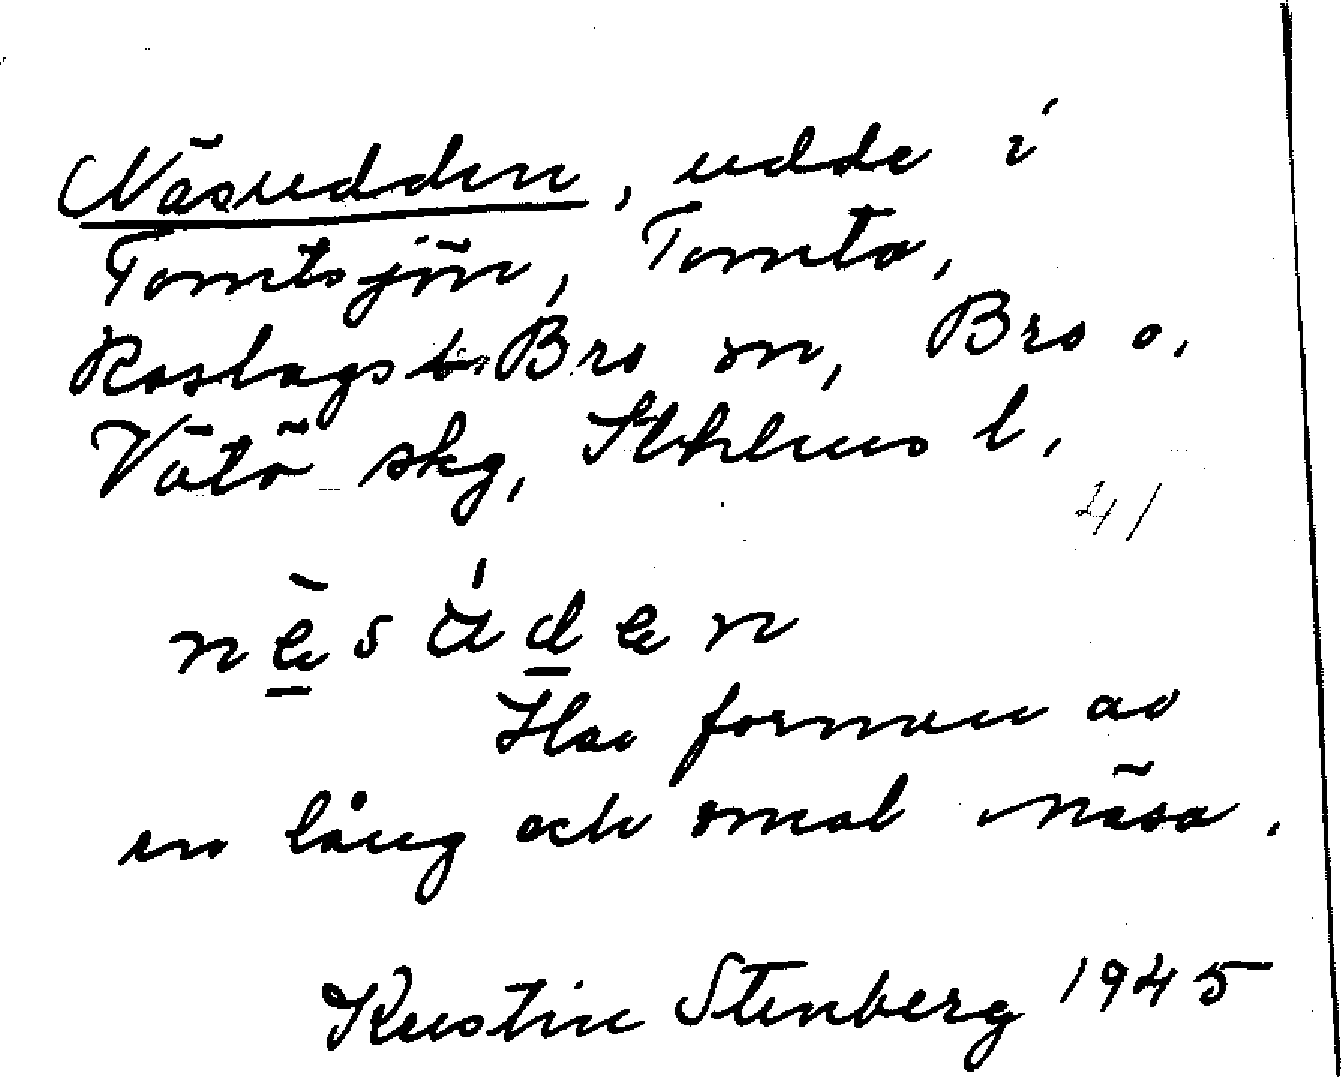 Näsudden, udde i
Tomtsjön, Tomta,
Roslags Bro sn, Bro o.
Vätö skg, Sthlms l.
41
nèsúden
Har formen av
en lång och smal näsa.
Kerstin Stenberg 1945